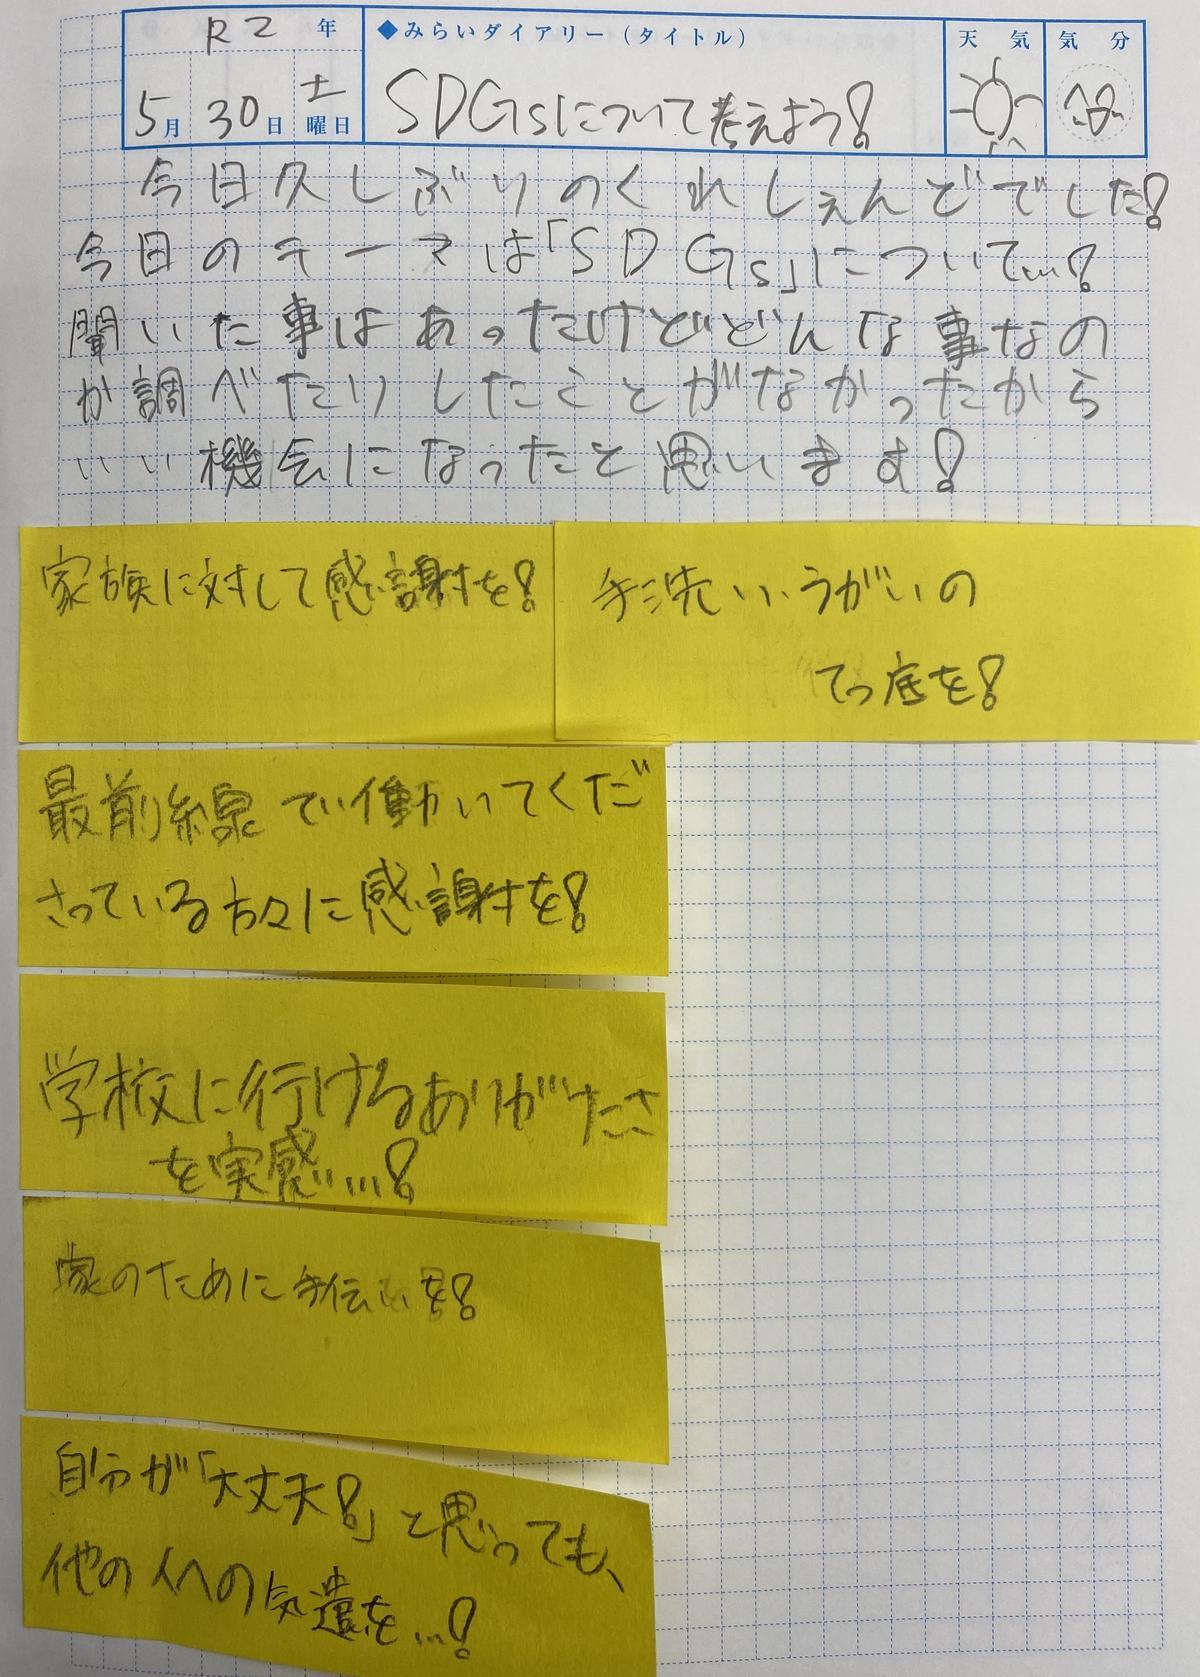 R2年
◆みらいダイアリー（タイトル）
天気
気分
5月30日土曜日
SDGsについて考えよう!
今日久しぶりのくれしぇんどでした!
今日のテーマは「SDGs」について...!
聞いた事はあったけどどんな事なの
か調べたりしたことがなかったから
いい機会になったと思います!
家族に対して感謝を!
手洗い、うがいの
てっ底を!
最前線で働いてくだ
さっている方々に感謝を!
学校に行けるありがたさ
を実感...!
家のために手伝いを!
自分が「大丈夫!」と思っても、
他の人への気遣を...!